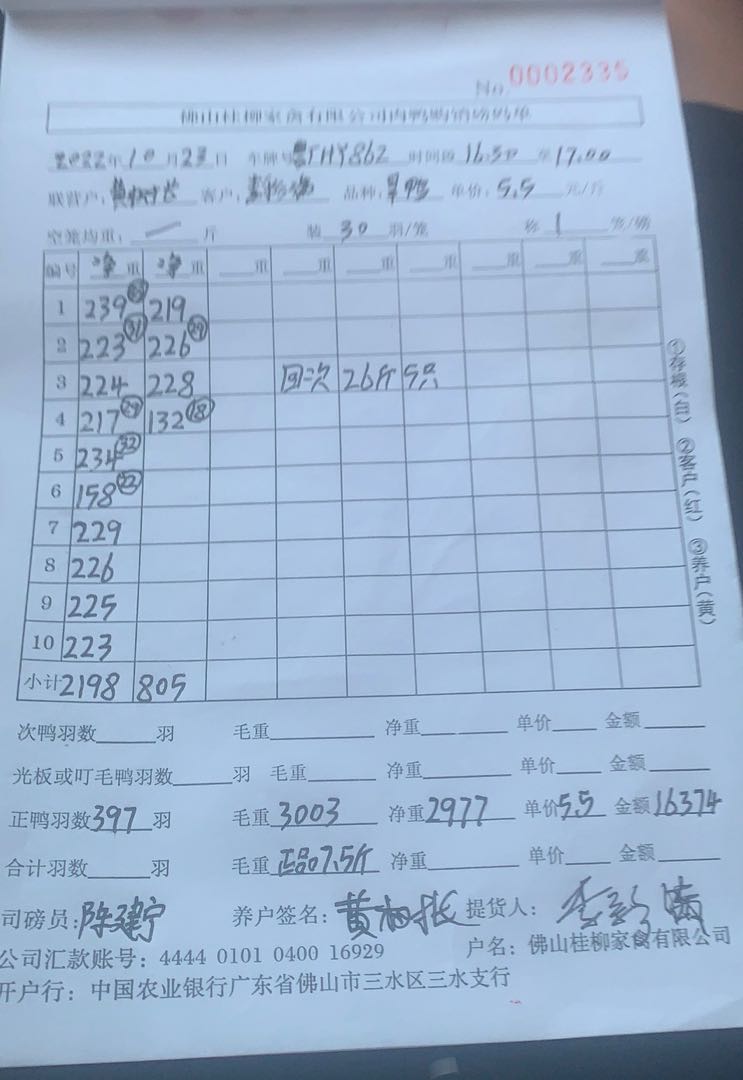 No. 0002335
佛山桂柳家禽有限公司肉鸭购销磅码单
2022年10月23日 车牌号 THY862 时间段 16:30 至 17:00
联营户: 客户: 品种: 单价: 5.5 元/斤
空笼均重: 斤 装 30 羽/笼 称 1 笼/磅
编号 净重 净重 重 重 重 重 重 重 重
1 239 219
2 223 31 226 29
3 224 228 回次 26斤 5只
4 217 29 132 18
5 234 32
6 158 22
7 229
8 226
9 225
10 223
小计 2198 805
①存根(白) ②客户(红) ③养户(黄)
次鸭羽数 羽 毛重 净重 单价 金额
光板或叮毛鸭羽数 羽 毛重 净重 单价 金额
正鸭羽数 397 羽 毛重 3003 净重 2977 单价 5.5 金额 16374
合计羽数 羽 毛重 正品7.5斤 净重 单价 金额
司磅员: 陈建宁 养户签名: 黄 提货人: 李
公司汇款账号: 4444 0101 0400 16929 户名: 佛山桂柳家禽有限公司
开户行: 中国农业银行广东省佛山市三水区三水支行